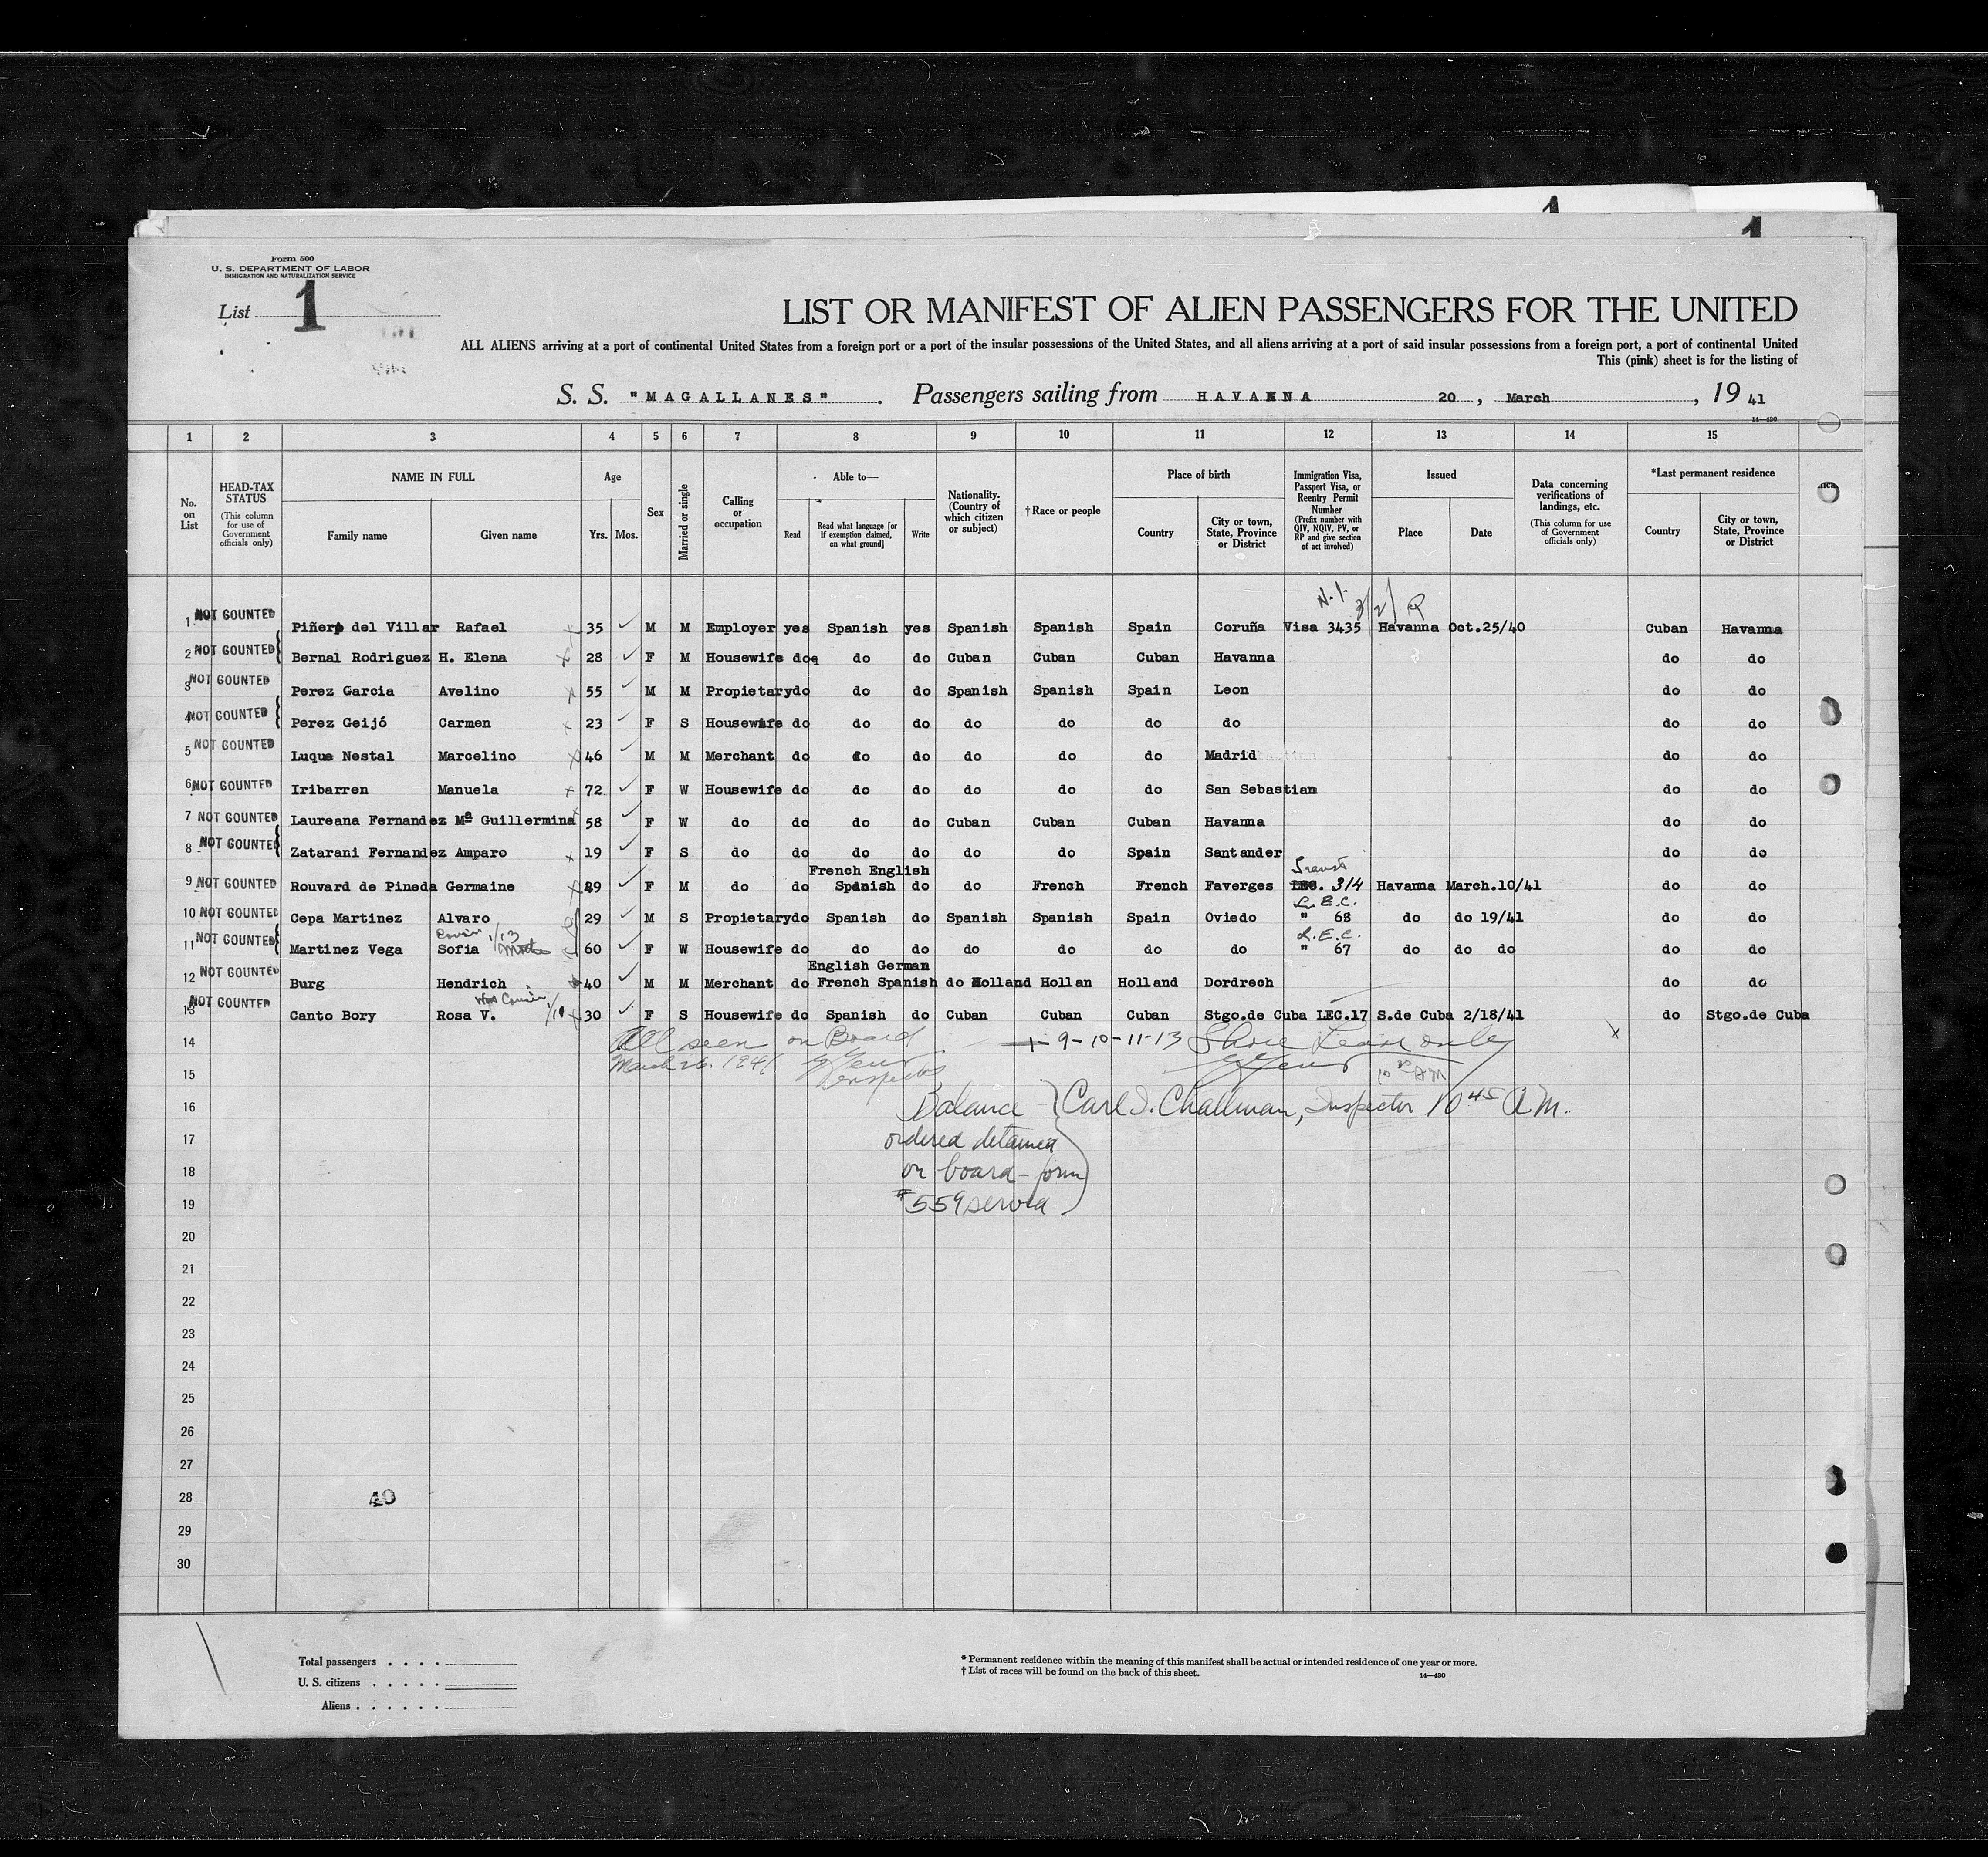 1
1
Form 500
U. S. DEPARTMENT OF LABOR
IMMIGRATION AND NATURALIZATION SERVICE
List 1
LIST OR MANIFEST OF ALIEN PASSENGERS FOR THE UNITED
ALL ALIENS arriving at a port of continental United States from a foreign port or a port of the insular possessions of the United States, and all aliens arriving at a port of said insular possessions from a foreign port, a port of continental United
This (pink) sheet is for the listing of
S. S. "MAGALLANES" . Passengers sailing from HAVANNA 20 , March , 19 41
14—430
1 2 3 4 5 6 7 8 9 10 11 12 13 14 15
No. on List
HEAD-TAX STATUS (This column for use of Government officials only)
NAME IN FULL
Family name Given name
Age
Yrs. Mos.
Sex
Married or single
Calling or occupation
Able to—
Read
Read what language [or if exemption claimed, on what ground]
Write
Nationality. (Country of which citizen or subject)
† Race or people
Place of birth
Country
City or town, State, Province or District
Immigration Visa, Passport Visa, or Reentry Permit Number (Prefix number with QIV, NQIV, PV, or RP and give section of act involved)
Issued
Place Date
Data concerning verifications of landings, etc. (This column for use of Government officials only)
*Last permanent residence
Country
City or town, State, Province or District
1 NOT COUNTED Piñero del Villar Rafael 35 M M Employer yes Spanish yes Spanish Spanish Spain Coruña Visa 3435 Havanna Oct.25/40 Cuban Havanna
2 NOT COUNTED Bernal Rodriguez H. Elena 28 F M Housewife do do do Cuban Cuban Cuban Havanna do do
3 NOT COUNTED Perez Garcia Avelino 55 M M Propietary do do do Spanish Spanish Spain Leon do do
4 NOT COUNTED Perez Geijó Carmen 23 F S Housewife do do do do do do do do do
5 NOT COUNTED Luque Nestal Marcelino 46 M M Merchant do do do do do do Madrid do do
6 NOT COUNTED Iribarren Manuela 72 F W Housewife do do do do do do San Sebastian do do
7 NOT COUNTED Laureana Fernandez Mª Guillermina 58 F W do do do do Cuban Cuban Cuban Havanna do do
8 NOT COUNTED Zatarani Fernandez Amparo 19 F S do do do do do do Spain Santander do do
French English
9 NOT COUNTED Rouvard de Pineda Germaine 39 F M do do Spanish do do French French Faverges 314 Havanna March.10/41 do do
L.E.C.
10 NOT COUNTED Cepa Martinez Alvaro 29 M S Propietary do Spanish do Spanish Spanish Spain Oviedo " 68 do do 19/41 do do
Cousin 1/13 L.E.C.
11 NOT COUNTED Martinez Vega Sofia 60 F W Housewife do do do do do do do " 67 do do do do do
English German
12 NOT COUNTED Burg Hendrich 40 M M Merchant do French Spanish do Holland Hollan Holland Dordrech do do
Cousin
13 NOT COUNTED Canto Bory Rosa V. 30 F S Housewife do Spanish do Cuban Cuban Cuban Stgo.de Cuba LEC.17 S.de Cuba 2/18/41 do Stgo.de Cuba
14 All seen on Board 9-10-11-13 Shore Leave only
15 March 26. 1941 Inspector
16 Balance Carl J. Challman, Inspector 10 45 A.M.
17 ordered detained
18 on board - form
19 #559 served
20
21
22
23
24
25
26
27
28 40
29
30
Total passengers . . . .
U. S. citizens . . . . .
Aliens . . . . . .
* Permanent residence within the meaning of this manifest shall be actual or intended residence of one year or more.
† List of races will be found on the back of this sheet.
14—430